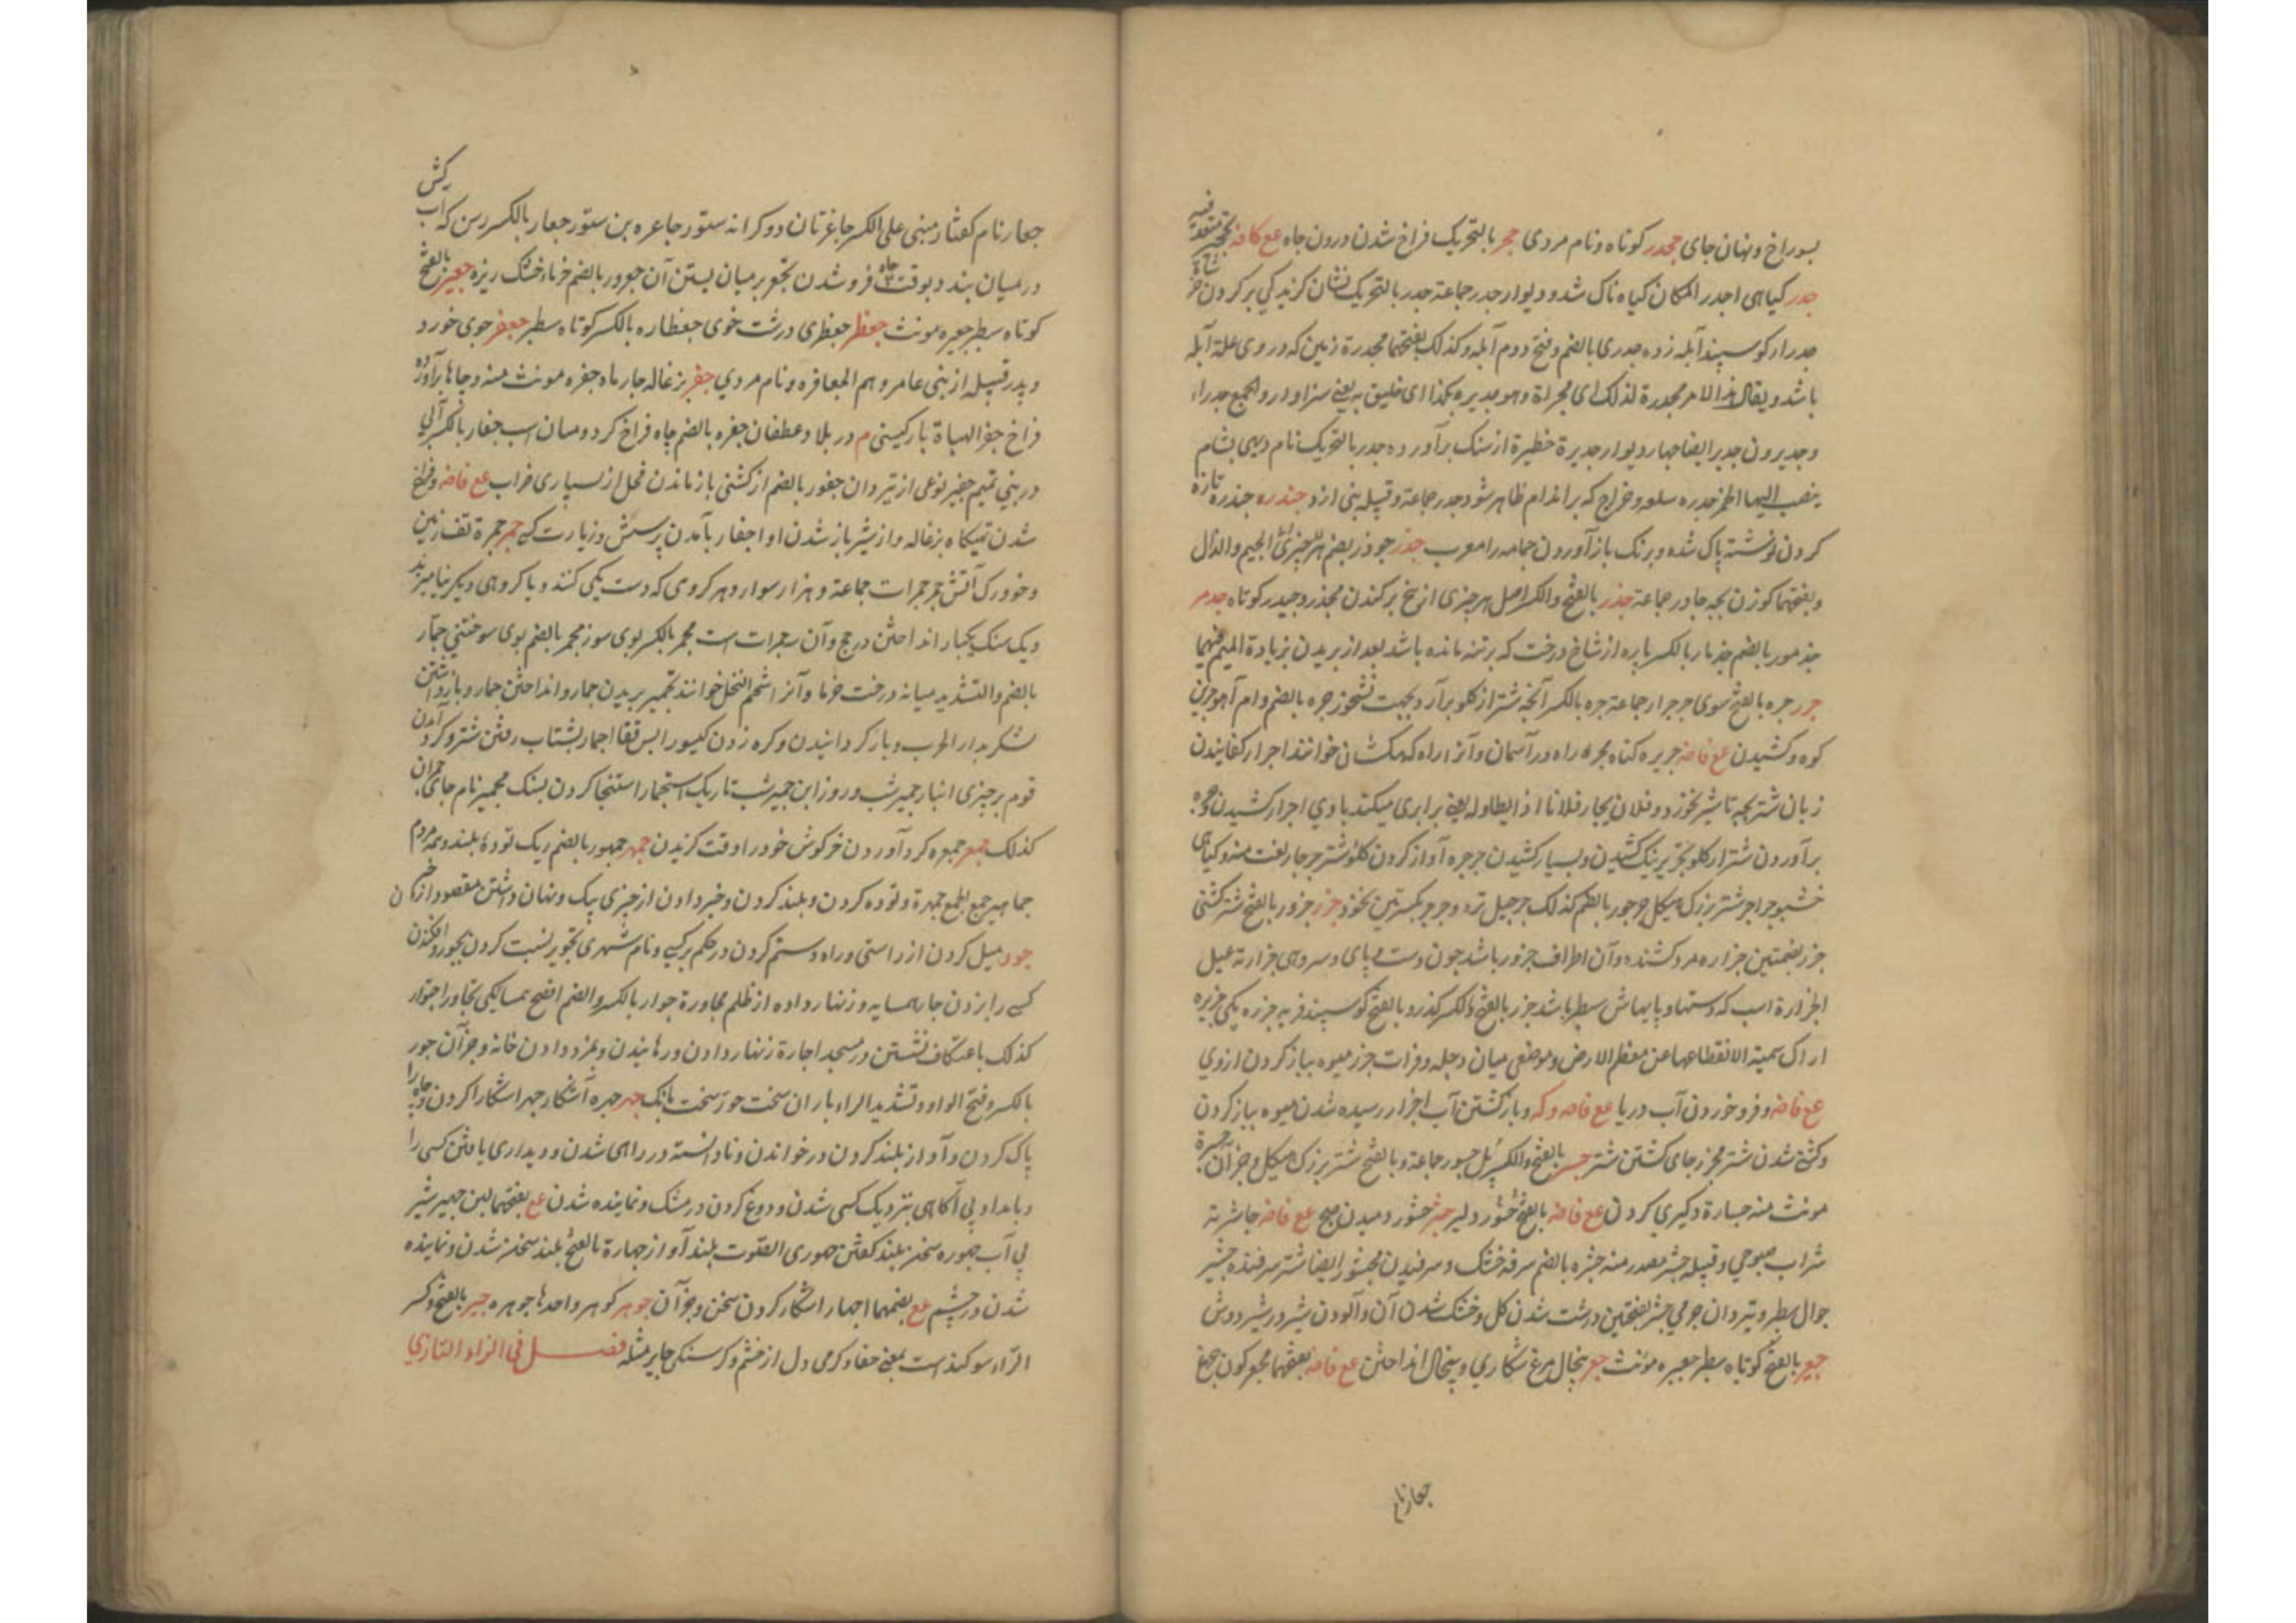 بسوراخ و نهان جای جحدر کوتاه و نام مردی جحر بالتحریک فراخ شدن درون جاه ع کافه
جدر کیاهی اجدر المکان کیاه ناک شد و دیوار جدر جماعة جدر بالتحریک نشان کزیدکی بر کردن
جدرا کوسپند آبله زده جدری بالضم و فتح دوم آبله و کذلک بفتحهما مجدرة زمین که در وی علة آبله
باشد و یقال هذا الامر مجدرة لذلک ای محراة و هو جدیر بکذا ای خلیق به یعنی سزاوار و الجمع جدراء
و جدیرون جدیر ایضا جهار دیوار جدیرة حظیرة از سنک برآورده جدر بالتحریک نام دیهی بشام
ینصب الیها الخمر جدره سلعه و خراج که بر اندام ظاهر شود جدر جماعة و قبیله بنی ازد جندره جندرة تازه
کردن نوشته پاک شده و برنک باز آوردن جامه را معرب جذر جوذر بضم الجیم والذال
و بفتحهما کوزن بچه جاذر جماعة جذر بالفتح والکسر اصل هر چیزی از بیخ برکندن مجذر و جیدر کوتاه جذمر
جذمور بالضم جذمار بالکسر پاره از شاخ درخت که بر تنه مانده باشد بعد از بریدن بزیادة المیم فیهما
جرر جره بالفتح سبوی جر جرار جماعة جره بالکسر آنچه شتر از کلو برآرد بجهت نشخوز جره بالضم و ام آهو جر بن
کوه و کشیدن ع فاضه جریره کناه مجره راه در آسمان و آنرا راه کهکشان خوانند اجرار کفانیدن
زبان شتر بچه تا شیر نخوزد و فلان یجار فلانا اذ ایطاوله یعنی برابری میکند با وی اجترار کشیدن و جره
برآوردن شتر از کلو تجریر نیک کشیدن و بسیار کشیدن جرجره آواز کردن کلوی شتر جرجار نعت منه و کیاهی
خشبو جراجر شتر بزرک هیکل جرجور بالضم کذلک جرجیل تره و جرجر بکسرتین نخود جزر جزور بالفتح شتر کشتنی
جزر بضمتین جزاره مرد کشنده و آن اطراف جزور باشد چون دست و پای و سر و هی جزارته عبل
الجزارة اسب که دستها و پایهاش سطبر باشد جزر بالفتح والکسر کذر و بالفتح کوسپند فربه جزره یکی جزیره
اراک سمیته الانقطاعها عن معظم الارض و موضعی میان دجله و فرات جزر میوه باز کردن از وی
ع فاضه و فرو خوردن آب دریا ع فاضه و که و باز کشتن آب اجزار رسیده شدن میوه بباز کردن
و کشته شدن شتر مجزر جای کشتن شتر جسر بالفتح والکسر پل جسور جماعة و بالفتح شتر بزرک هیکل و جز آن جسرة
مونث منه جسارة دلیری کردن ع فاضه بالفتح جسور دلیر جشر جشور دمیدن صبح ع فاضه جاشریة
شراب صبوحی و قبیله جشر مصدر منه جشره بالضم سرفه خشک و سرفیدن مجشور ایضا شتر سرفنده جشیر
جوال سطبر و تیردان جرمی جشر بفتحتین درشت شدن کل و خشک شدن آن و آلودن شیر در شیر دوش
جعبر بالفتح کوتاه سطبر جعبره مونث جعر پنجال مرغ شکاری و پیخال انداختن ع فاضه بفتحهما مجعر کون جمع
جعار نام
جعار نام کفتار مبنی علی الکسر جاعرتان دو کرانه ستور جاعره بن ستور جعار بالکسر رسن که آب کش
در میان بندد بوقت فرو شدن تجعر بر میان بستن آن جعرور بالضم خرماء خشک ریزه جعبر بالفتح
کوتاه سطبر جعبره مونث جعظر جعظری درشت خوی جعظاره بالکسر کوتاه سطبر جعفر جوی خورد
و پدر قبیله از بنی عامر و هم الجعافره و نام مردی جفر بزغاله جهار ماه جفره مونث منه و جاه نا برآورده
فراخ جفر الهباة نام کیستی م در بلاد غطفان جفره بالضم جاه فراخ کرد و میان اسب جفار بالکسر آبی
در بنی تمیم جفیر نوعی از تیردان جفور بالضم از کشنی باز ماندن فحل از بسیاری ضراب ع فاضه و فراخ
شدن تهیکاه بزغاله و از شیر باز شدن او اجفار بآمدن پرسش و زیارت کسی جمر جمرة تفسار زمین
و خودرک آتش جمر جمرات جماعة و هزار سوار و هر کروی که دست یکی کنند و با کروهی دیکر نیامیزند
و یک سنک یکبار انداختن در حج و آن جمرات است مجمر بالکسر بوی سوز مجمر بالضم بوی سوختنی جمار
بالضم والتشدید میانه درخت خرما و آنرا شحم النخل خوانند تجمیر بریدن جمار و انداختن جمار و باز داشتن
لشکر بدار الحرب و باز کردانیدن و کره زدن کیسو را پس قفا اجمار بشتاب رفتن شتر و کرد آمدن
قوم بر چیزی انبار جمیر شب و روز ابن جمیر شب تاریک استجمار استنجا کردن بسنک مجیمر نام جای
کذلک جمعر جمعره کرد آوردن خرکوش خود را وقت کزیدن جمهر جمهور بالضم ریک توده بلند و همه مردم
جماهیر جمع الجمع جمهرة و توده کردن و بلند کردن و خبر دادن از چیزی بیک و نهان داشتن مقصود از آن
جور میل کردن از راستی و راه و ستم کردن در حکم بر کسی و نام شهری تجویر نسبت کردن بجور و افکندن
کسی را بزدن جار همسایه و زنهار داده از ظلم مجاورة جوار بالکسر والضم افصح همسایکی تجاور اجتوار
کذلک باعتکاف نشستن در مسجد اجارة زنهار دادن و رهانیدن و بمزد دادن خانه و جز آن جور
بالکسر و فتح الواو و تشدید الراء باران سخت جور سخت بانک جهر جهره آشکار جهر اشکارا کردن و جاه را
پاک کردن و آواز بلند کردن در خواندن و نادانسته در راهی شدن و دیداری یافتن کسی را
و بامداد بی آکاهی بنزدیک کسی شدن و دوغ کردن در مشک و نماینده شدن ع بفتحهما لبن جهیر شیر
بی آب جهوره سخن بلند کفتن جهوری الصوت بلند آواز جهارة بالفتح بلند سخن شدن و نماینده
شدن در چشم ع بضمهما اجهار اشکار کردن سخن و جز آن جوهر کوهر واحدها جوهره جیر بالفتح و کسر
الراء سوکند است بمعنی حقا و کرمی دل از خشم و کرسنکی جایر مثله فصل فی الزاء التازی